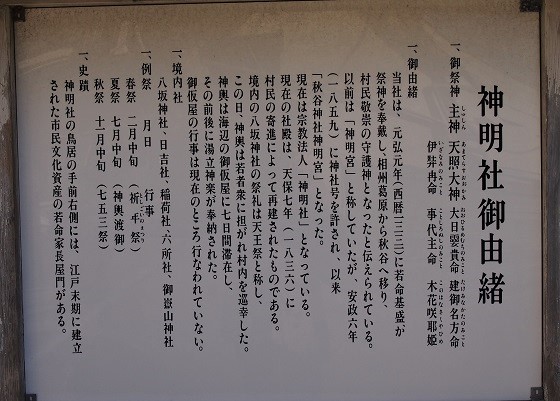 神明社御由緒
一、御祭神 主神 天照大神 大日孁貴命 建御名方命
伊弉冉命 事代主命 木花咲耶姫
一、御由緒
当社は、元弘元年(西暦一三三一)に若命基盛が
祭神を奉戴し、相州葛原から秋谷へ移り、
村民敬崇の守護神となったと伝えられている。
以前は「神明宮」と称していたが、安政六年
(一八五九)に神社号を許され、以来
「秋谷神社神明宮」となった。
現在は宗教法人「神明社」となっている。
現在の社殿は、天保七年(一八三六)に
村民の寄進によって再建されたものである。
境内の八坂神社の祭礼は天王祭と称し、
この日、神輿は若者衆に担がれ村内を巡幸した。
神輿は海辺の御仮屋に七日間滞在し、
その前後に湯立神楽が奉納された。
御仮屋の行事は現在のところ行なわれていない。
一、境内社
八坂神社、日吉社、稲荷社、六所社、御嶽山神社
一、例祭 月日 行事
春祭 二月中旬 (祈年祭)
夏祭 七月中旬 (神輿渡御)
秋祭 十一月中旬 (七五三祭)
一、史蹟
神明社の鳥居の手前右側には、江戸末期に建立
された市民文化資産の若命家長屋門がある。